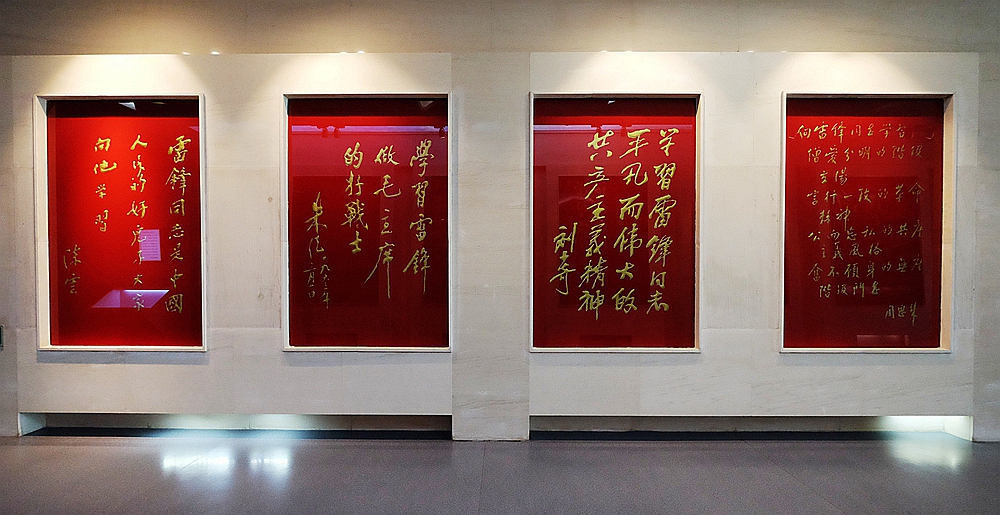 雷鋒同志是中國
人民的好兒子大家
向他学習
陳雲
學習雷鋒
做毛主席
的好戰士
朱德 一九六三年
二月
学習雷鋒同志
平凡而偉大的
共产主義精神
刘少奇
向雷鋒同志学習
憎爱分明的階级
立場
言行一致的革命
精神
公而忘私的共产
主義風格
奮不顧身的無产
階级鬥志
周恩来